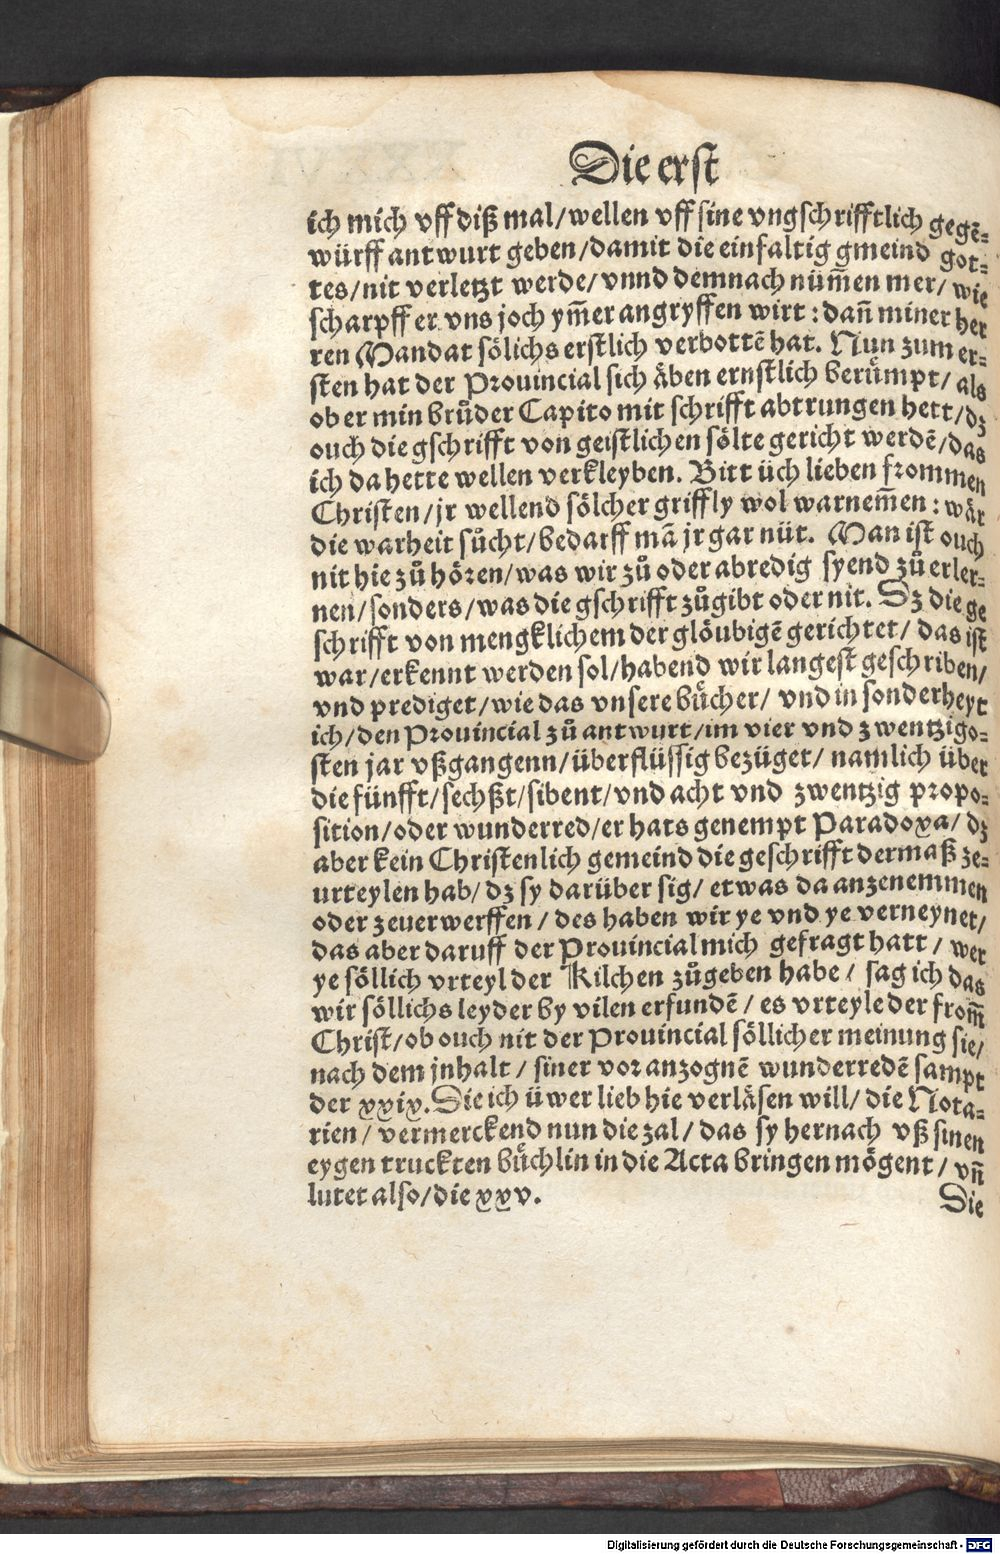 Die erst
ich mich vff diß mal/wellen vff sine vngschrifftlich gegẽ-
würff antwurt geben/damit die einfaltig gmeind got-
tes/nit verletzt werde/vnnd demnach nüm̃en mer/wie
scharpff er vns joch ym̃er angryffen wirt: dañ miner her
ren Mandat sölichs erstlich verbottẽ hat. Nun zum er-
sten hat der Prouincial sich äben ernstlich berümpt/als
ob er min brůder Capito mit schrifft abtrungen hett/dz
ouch die gschrifft von geistlichen sölte gericht werdẽ/das
ich da hette wellen verkleyben. Bitt üch lieben frommen
Christen/jr wellend sölcher griffly wol warnem̃en: wär
die warheit sůcht/bedarff mã jr gar nüt. Man ist ouch
nit hie zů hören/was wir zů oder abredig syend zů erler-
nen/sonders/was die gschrifft zůgibt oder nit. Dz die ge
schrifft von mengklichem der glöubigẽ gerichtet/das ist
war/erkennt werden sol/habend wir langest geschriben/
vnd prediget/wie das vnsere bücher/vnd in sonderheyt
ich/den Prouincial zů antwurt/im vier vnd zwentzigo-
sten jar vßgangenn/überflüssig bezüget/namlich über
die fünfft/sechßt/sibent/vnd acht vnd zwentzig propo-
sition/oder wunderred/er hats genempt Paradoxa/dz
aber kein Christenlich gemeind die geschrifft dermaß ze-
urteylen hab/dz sy darüber sig/etwas da anzenemmen
oder zeuerwerffen/des haben wir ye vnd ye verneynet/
das aber daruff der Prouincial mich gefragt hatt/wer
ye söllich vrteyl der Kilchen zůgeben habe/sag ich das
wir söllichs leyder by vilen erfundẽ/es vrteyle der from̃
Christ/ob ouch nit der Prouincial söllicher meinung sie/
nach dem jnhalt/siner vor anzognẽ wunderredẽ sampt
der xxix. Die ich üwer lieb hie verläsen will/die Nota-
rien/vermerckend nun die zal/das sy hernach vß sinen
eygen truckten büchlin in die Acta bringen mögent/vñ
lutet also/die xxv.
Die
Digitalisierung gefördert durch die Deutsche Forschungsgemeinschaft - DFG